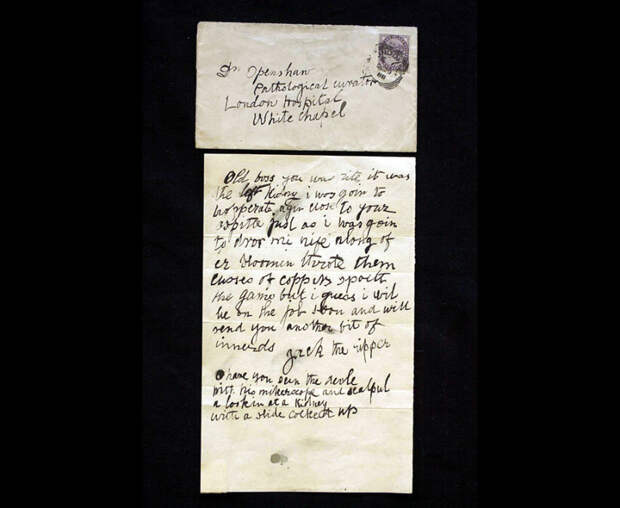 Dr Openshaw
Pathological curator
London Hospital
White chapel
Old boss you was rite it was
the left kidny i was goin to
hoperate agin close to your
ospitle just as i was goin
to dror mi nife along of
er bloomin throte them
cusses of coppers spoilt
the game but i guess i wil
be on the job soon and will
send you another bit of
innerds
Jack the ripper
O have you seen the devle
with his mikerscope and scalpul
a lookin at a Kidney
with a slide cocked up